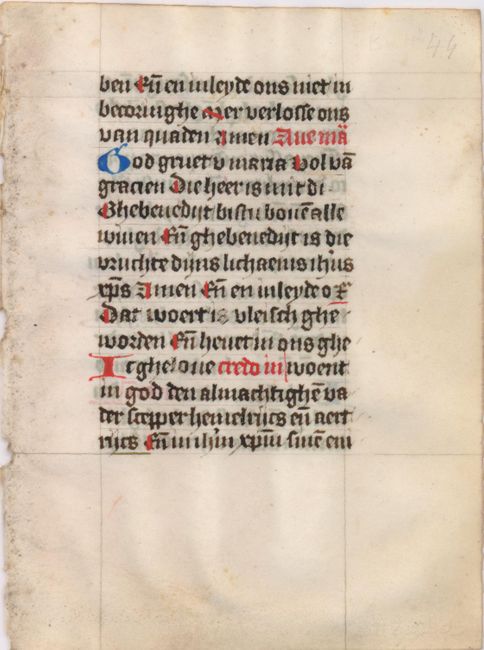 44
ben Eñ en inleyde ons niet in
becoringhe Mer verlosse ons
van quaden Amen Aue mā
God gruet v maria Vol vā
gracien Die heer is mit di
Ghebenedijt bistu bouē alle
wiuen Eñ ghebenedijt is die
vruchte dijns lichaems ihūs
xp̄s Amen Eñ en inleyde o
Dat woert is vleisch ghe
worden Eñ heuet in ons ghe
Ic gheloue credo in woent
in god den almachtighē va
der scepper hemelrijcs eñ aert
rijcs Eñ in ihm̄ xpm̄ sinē een